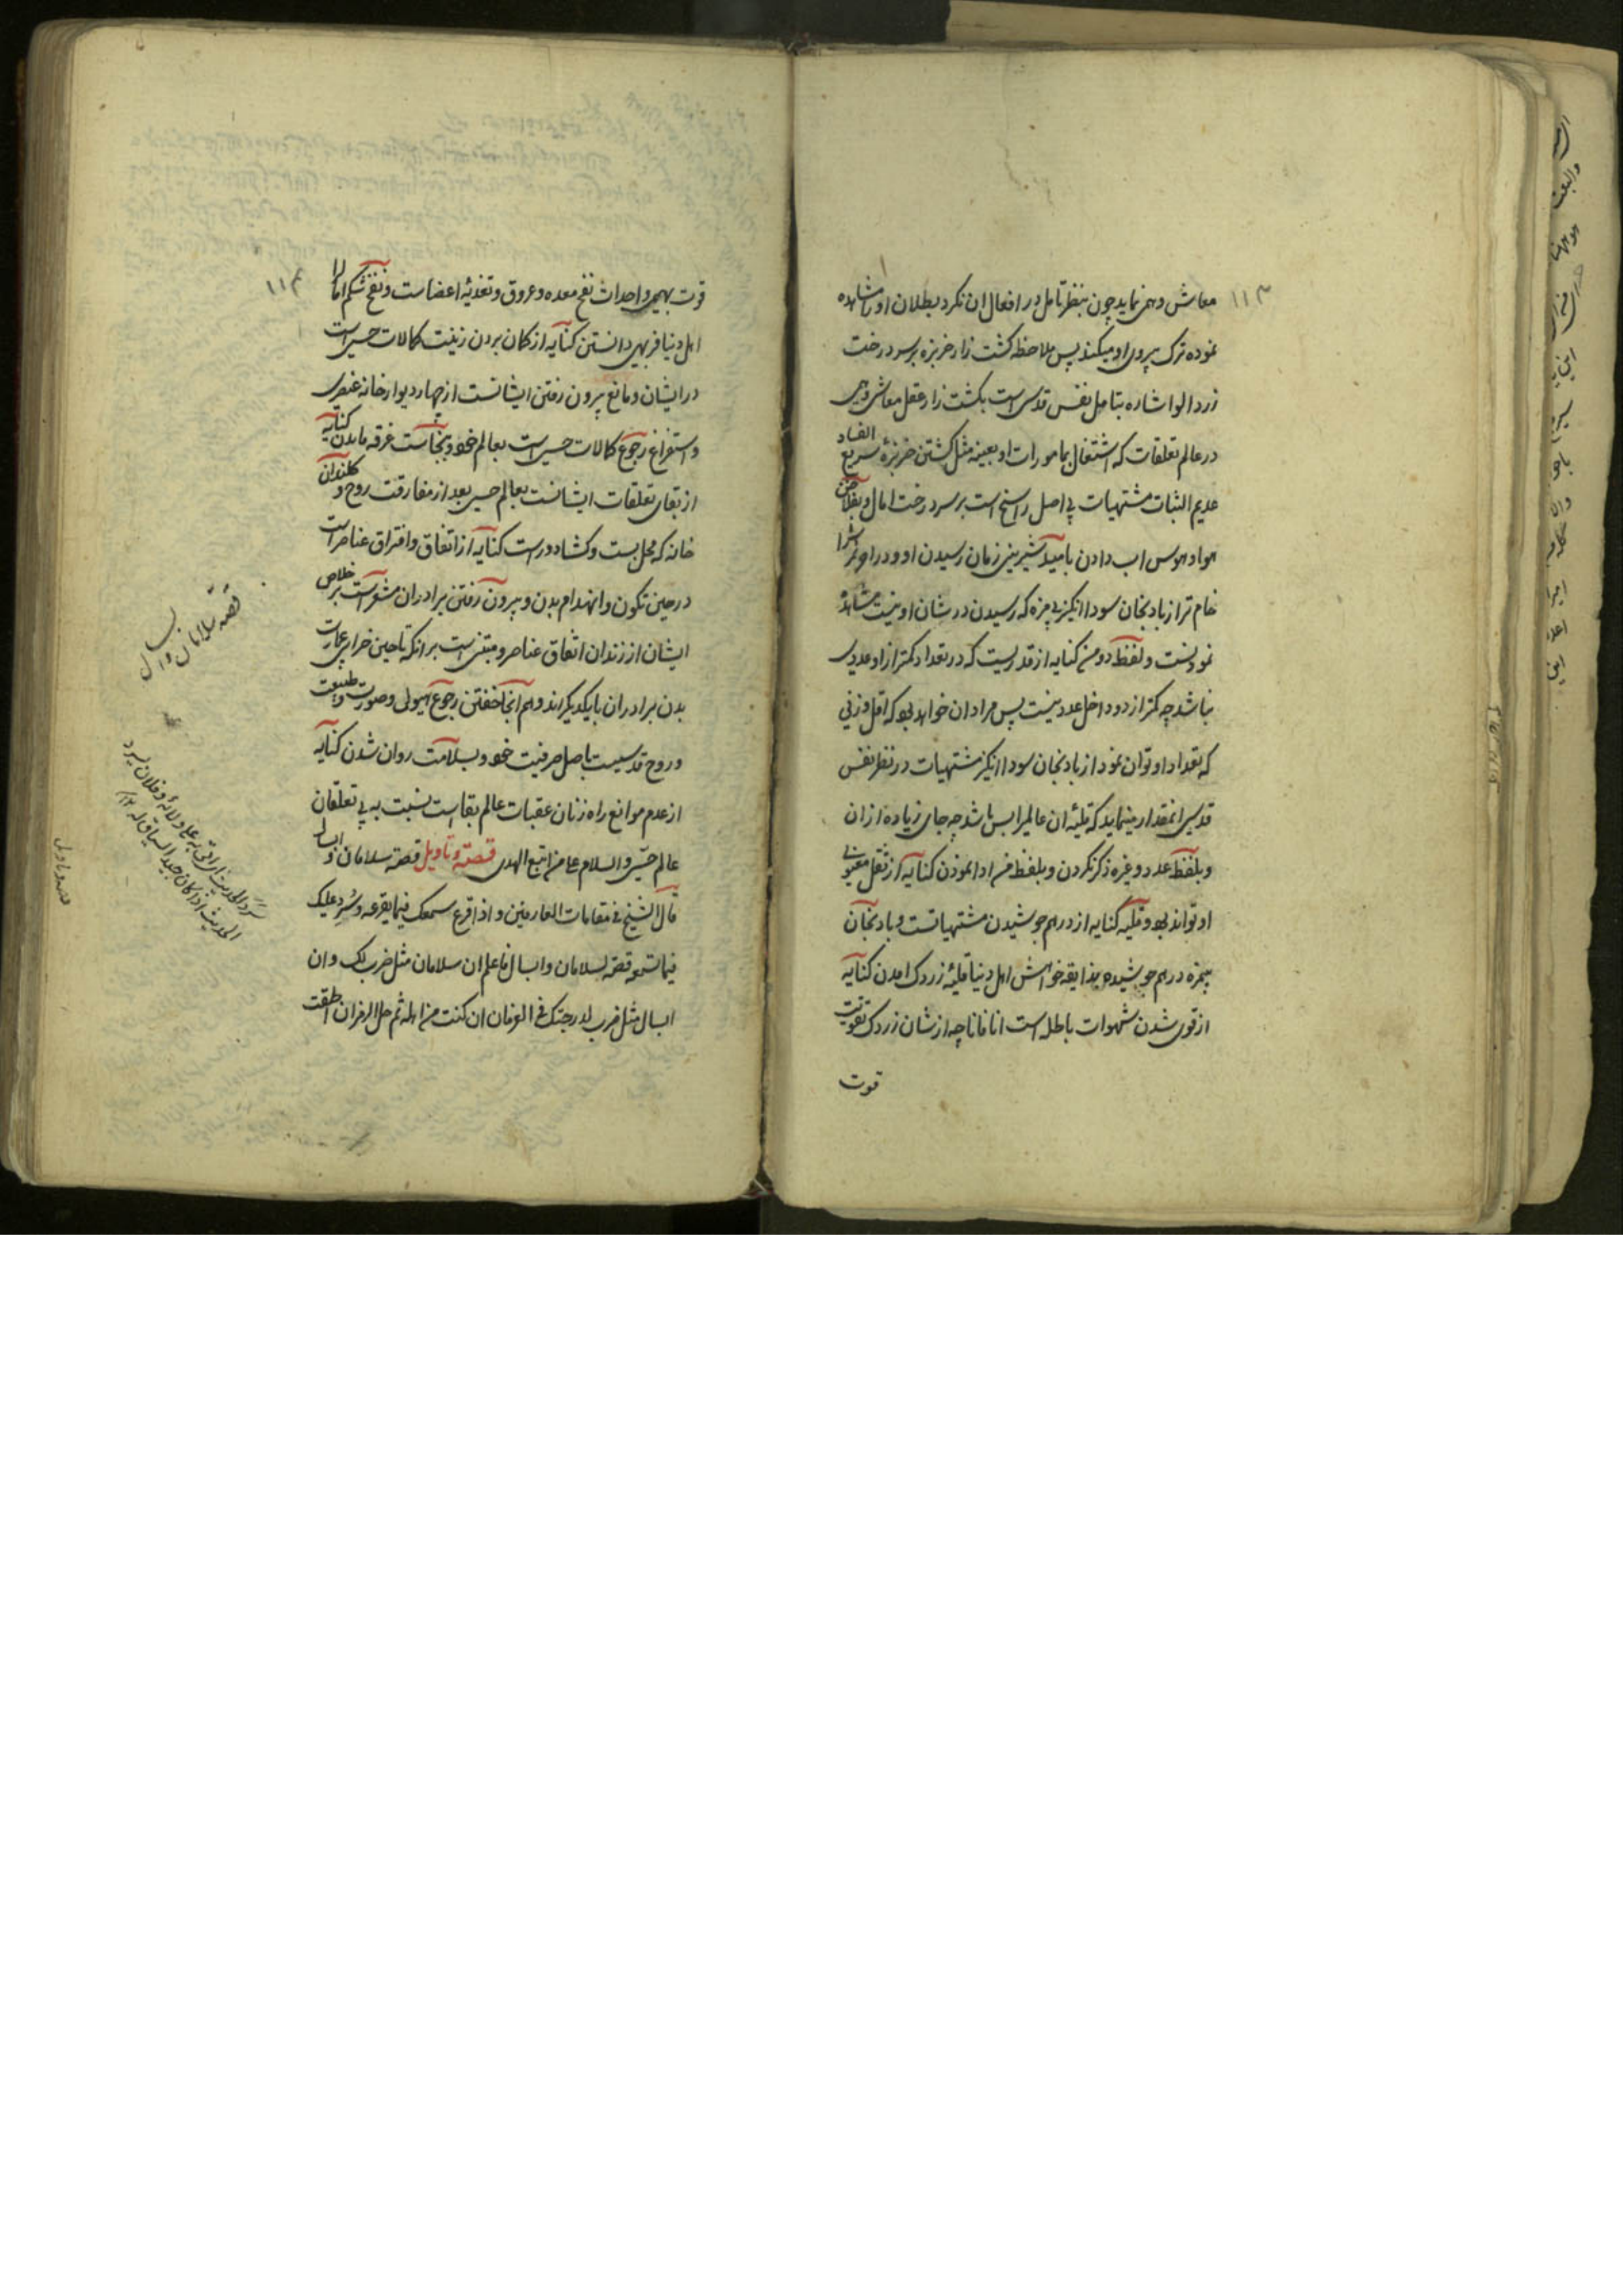 ۱۱۳
معاش وهمی نماید چون بنظر تامل در افعال ان نکرد بطلان او را مشاهده
نموده ترک پیروی او میکند پس ملاحظه کشت زار خربزه بر سر درخت
زردالو اشاره بتامل نفس قدسی است بکشت زار عقل معاش وهمی
در عالم تعلقات که اشتغال بمامورات او بعینه مثل کشتن خربزهٔ سریع الفساد
عدیم الثبات مشتهیات بی اصل راسخ است بر سر درخت امال و بفلاخن
هوا و هوس اب دادن بامید شیرینی زمان رسیدن او و در اخر ثمر را
خام تر از بادنجان سودا انکیز بی مزه که رسیدن در شان او نیست مشاهدهٔ
نمودنست و لفظ دو من کنایه از قدریست که در تعداد کمتر از او عددی
نباشد چه کمتر از دو داخل عدد نیست پس مراد ان خواهد بود که اقل وزنی
که تعداد او توان نمود از بادنجان سودا انکیز مشتهیات در نظر نفس
قدسی انمقدار مینماید که قلیهٔ ان عالمیرا بس باشد چه جای زیاده از ان
و بلفظ عدد و غیره ذکر نکردن و بلفظ من ادا نمودن کنایه از ثقل معنوی
او تواند بود و قلیه کنایه از درهم جوشیدن مشتهیاتست و بادنجان
بیمزه درهم جوشیده بذایقه خواهش اهل دنیا قلیهٔ زردک امدن کنایه
از قوی شدن شهوات باطله است انا فانا چه از شان زردک تقویت
قوت
۱۱۴
قوت بهیمی و احداث نفخ معده و عروق و تغذیهٔ اعضاست و نفخ شکم اماله را
اهل دنیا فربهی دانستن کنایه از کمان بردن زینت کمالات حسی است
در ایشان و مانع بیرون رفتن ایشانست از چهار دیوار خانه عنصری
و استفراغ رجوع کمالات حسی است بعالم خود و بنجاست غرقه ماندن کنایه
از بقای تعلقات ایشانست بعالم حسی بعد از مفارقت روح و کلندان
خانه که محل بست و کشاد در است کنایه از اتفاق و افتراق عناصر است
در حین تکون و انهدام بدن و بیرون رفتن برادران مشعر است بر خلاص
ایشان از زندان اتفاق عناصر و مبتنی است بر انکه تا حین خرابی عمارت
بدن برادران با یکدیکراند و هم انجا خفتن رجوع هیولی و صورت و طبیعت
و روح قدسیست باصل صرفیت خود و بسلامت روان شدن کنایه
از عدم موانع راه زنان عقبات عالم بقاست نسبت به بی تعلقان
عالم حسی والسلام علی من اتبع الهدی قصة و تاویل قصه سلامان و ابسال
قال الشیخ فی مقامات العارفین و اذا قرع سمعک فیما یقرعه و سُرِد علیک
فیما تسمعه قصة لسلامان و ابسال فاعلم ان سلامان مثل ضرب لک و ان
ابسال مثل ضرب لدرجتک فی العرفان ان کنت من اهله ثم حل الرمز ان اطقت
قصه سلامان و ابسال
سرد الحدیث ای اتی به علی ولائه و فلان یسرد
الحدیث اذا کان جید السیاق له ۱۲